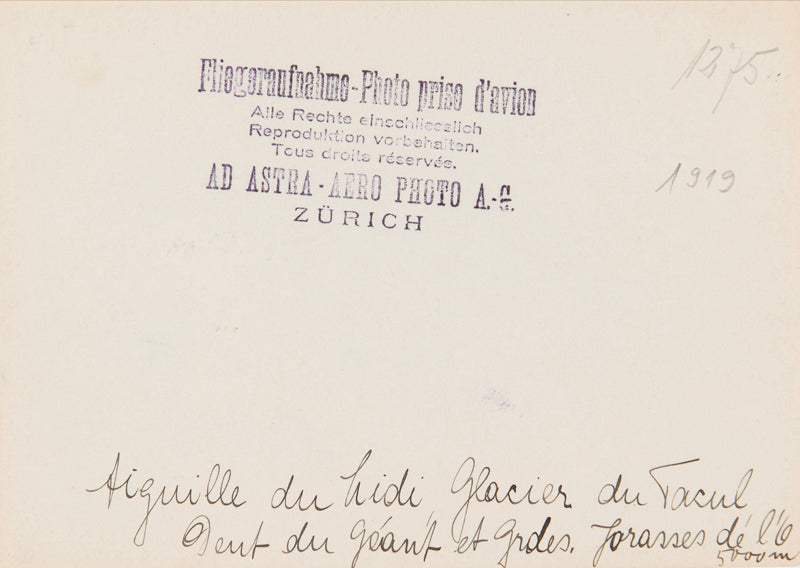 1275.
Fliegeraufnahme-Photo prise d'avion
Alle Rechte einschliesslich
Reproduktion vorbehalten.
Tous droits réservés.
1919
AD ASTRA-AERO PHOTO A.-G.
ZÜRICH
Aiguille du Midi, Glacier du Tacul
Dent du Géant et Grdes. Jorasses dé l'O
5000m